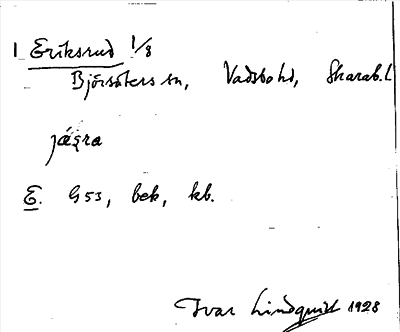 1 Eriksrud 1/8
Björsäters sn, Vadsbo hd, Skarab. l
E. G 53, bek, kb.
Ivar Lindquist 1928